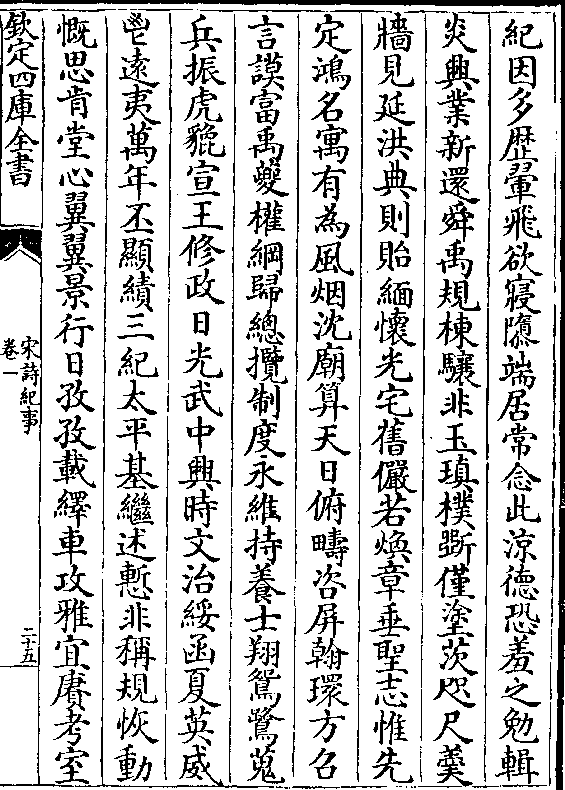 紀因多歴翬飛欲寢隳端居常念此涼德恐羞之勉輯
炎興業新還舜禹規棟驤非玉瑱樸斵僅塗茨咫尺羹
牆見延洪典則貽緬懷光宅舊儼若煥章垂聖志惟先
定鴻名寓有為風烟沈廟算天日俯疇咨屏翰環方召
言謨富禹夔權綱歸總攬制度永維持養士翔鴛鷺蒐
兵振虎貔宣王修政日光武中興時文治綏函夏英威
鬯遠夷萬年丕顯績三紀太平基繼述慙非稱規恢動
慨思肯堂心翼翼景行日孜孜載繹車攻雅宜賡考室
欽定四庫全書
宋詩紀事
卷一
二十五